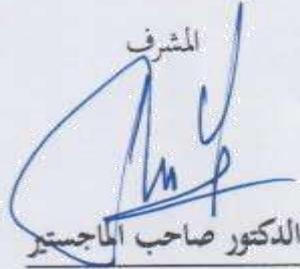 المشرف
الدكتور صاحب الماجستير